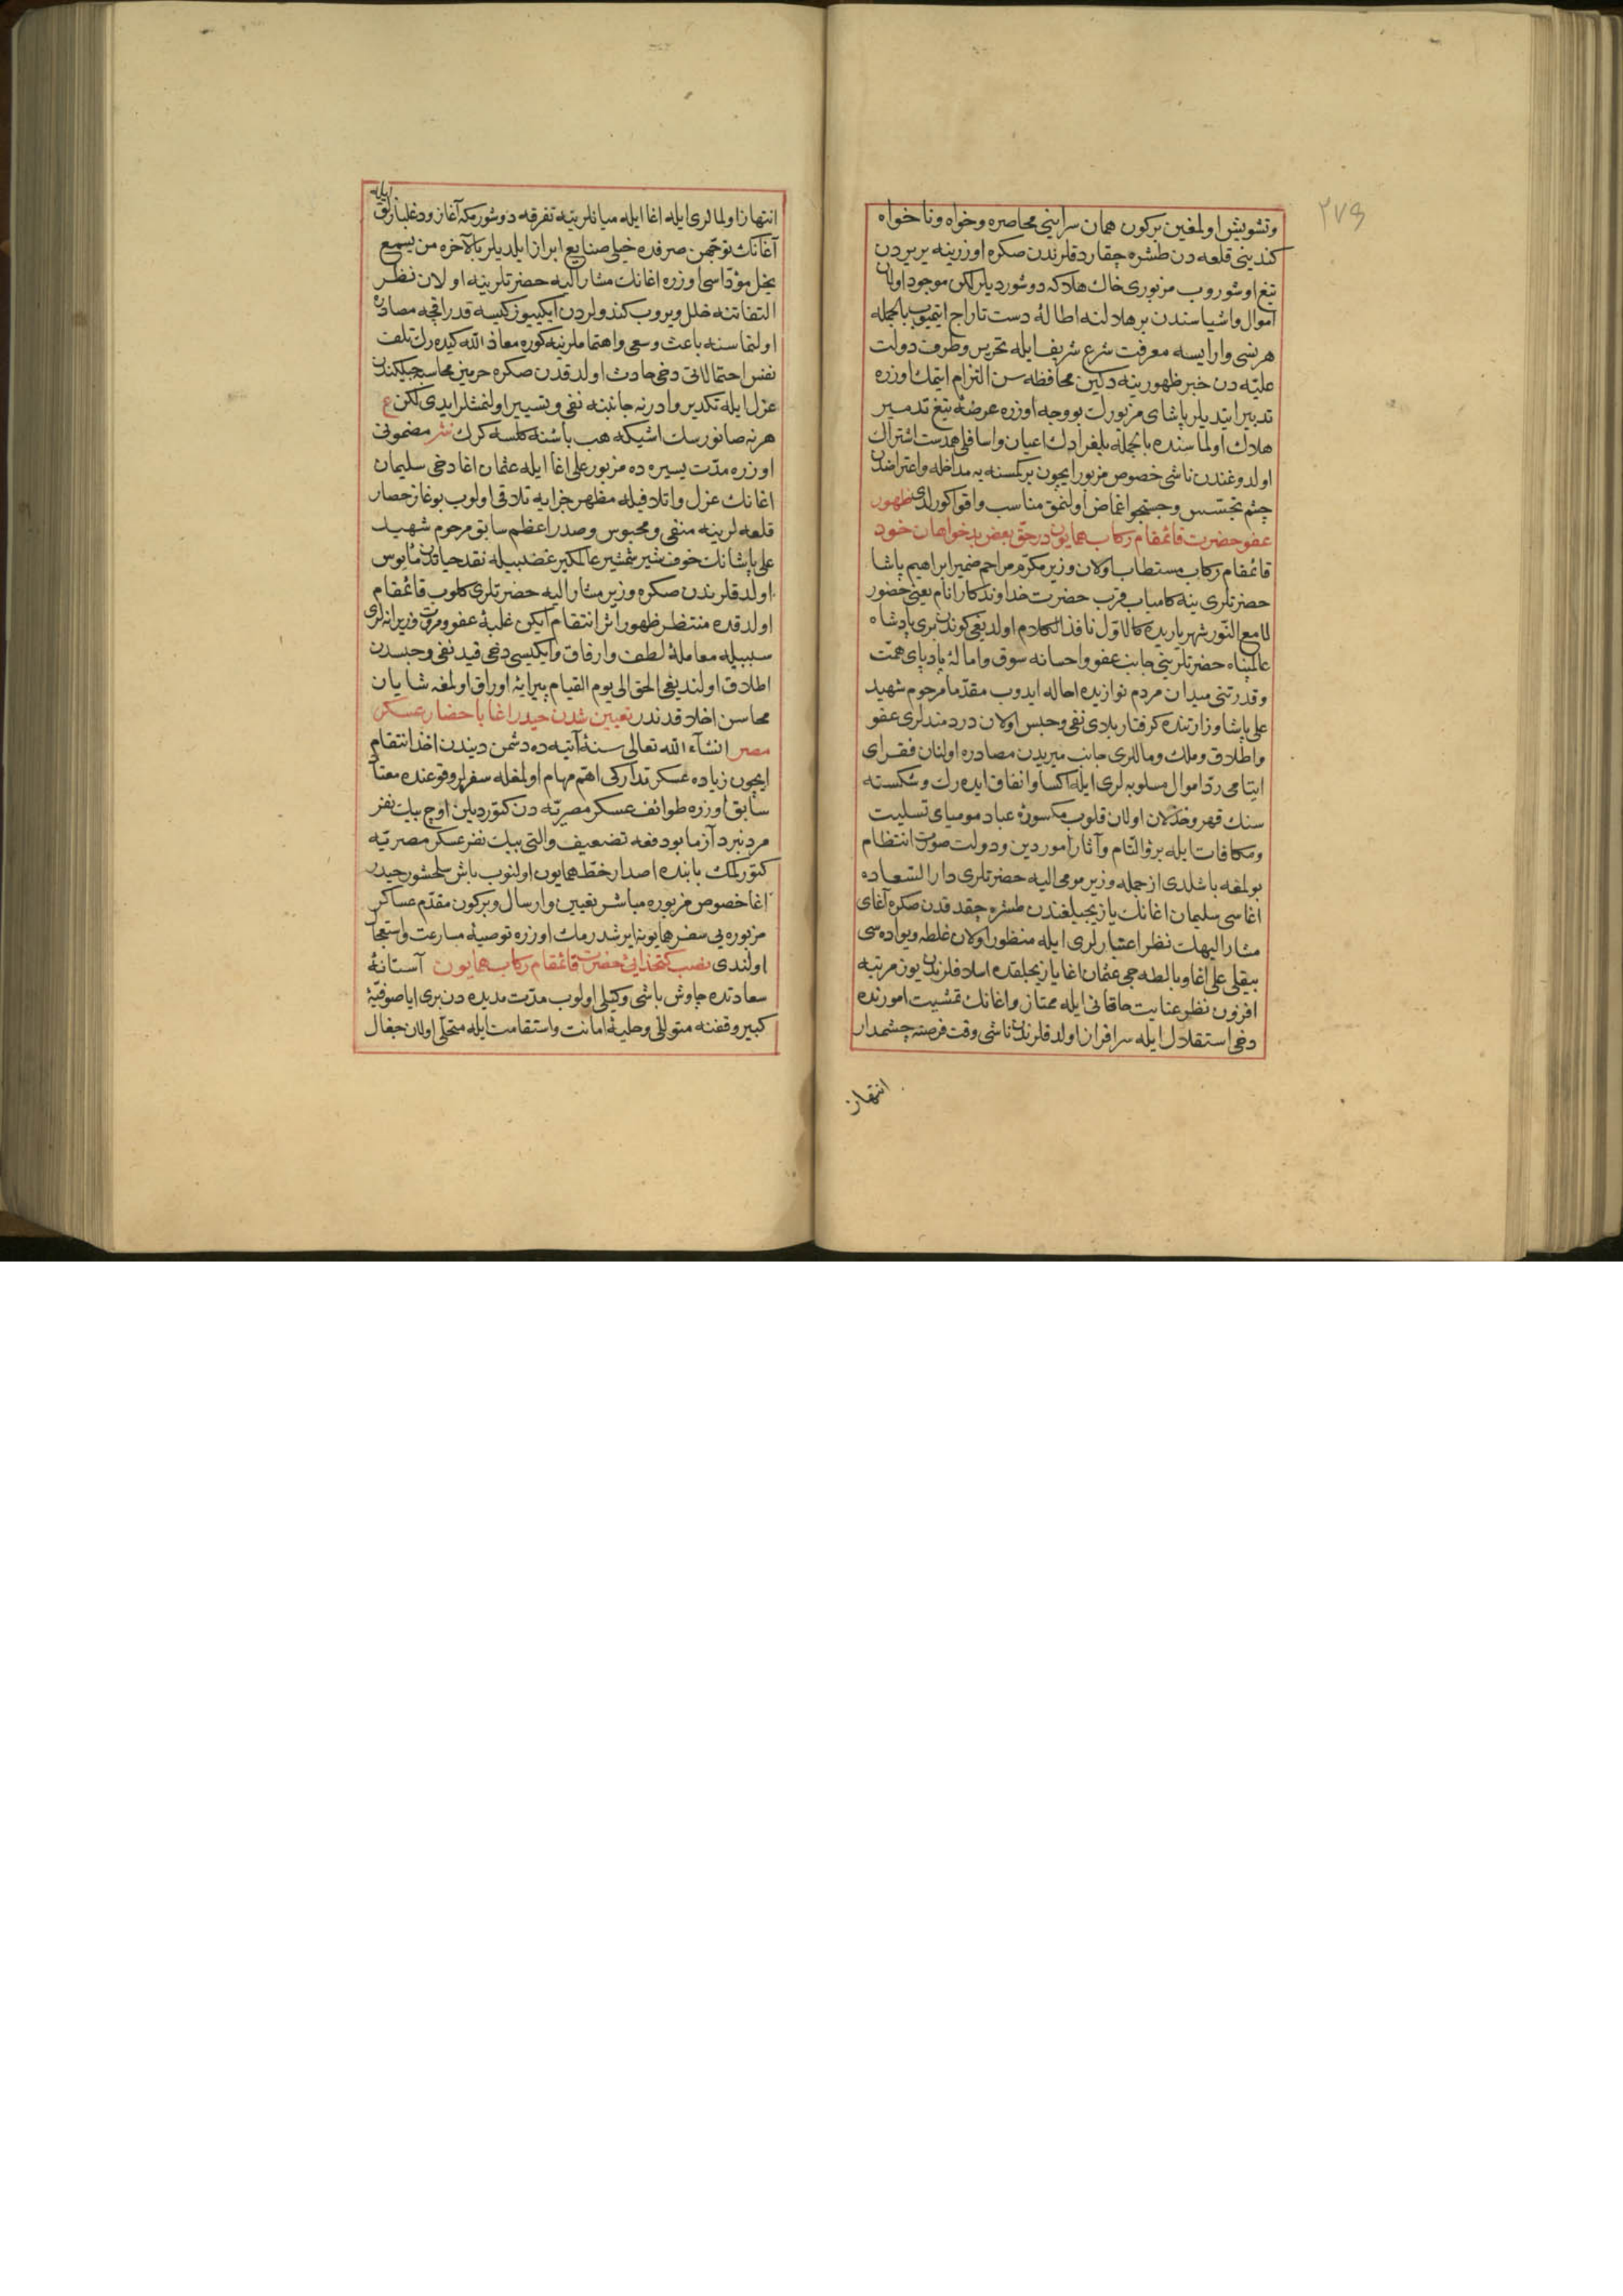 ٢٧٩
وتشويش اولمغين بركون همان سرايينى محاصره وخواه وناخواه
كندينى قلعه دن طشره چقاردقلرندن صكره اوزرينه يريردن
تيغ اوشوروب مزبورى خاك هلاكه دوشورديلر لكن موجود اولان
اموال واشياسندن بر هلالنه اطالهٔ دست تاراج ايتميوب بالجمله
هر نسى وارايسه معرفت شرع شريف ايله تحرير وطرف دولت
عليّه دن خبر ظهورينه دكين محافظه سن التزام ايتمك اوزره
تدبير ايتديلر پاشاى مزبورك بو وجه اوزره عرضهٔ تيغ تدمير
هلاك اولماسنده بالجمله بلغراد اعيان واسافلى همدست اشتراك
اولدوغندن ناشى خصوص مزبور ايچون بر كسنه يه مداخله واعتراضدن
چشم تجسّس وجستجو اغماض اولنمق مناسب واقوا كورلدى ظهور
عفو حضرت قائمقام ركاب همايون در حقّ بعض بدخواهان خود
قائمقام ركاب مستطاب اولان وزير مكرّم مراحم ضمير ابراهيم پاشا
حضرتلرى ينه كامياب قرب حضرت خداوندكار انام يعنى حضور
لامع النّور شهرياريده كالاوّل نافذ الكلام اولديغى كوندن برى پادشاه
عالمپناه حضرتلرينى جانب عفو واحسانه سوق وامالهٔ پادپاى همّت
وقدرتنى ميدان مردم نوازيده احاله ايدوب مقدّما مرحوم شهيد
على پاشا وزارتنده كرفتار بلاى نفى وحبس اولان دردمندلرى عفو
واطلاق وملك ومالرى جانب ميريدن مصادره اولنان فقراى
ايتامى ردّ اموال مسلوبه لرى ايله اكسا وانفاق ايده رك وشكسته
سنك قهر وخذلان اولان قلوب مكسورهٔ عباد موميای تسليت
ومكافات ايله برؤ التام وآثار امور دين ودولت صورت انتظام
بولمغه باشلدى از جمله وزير مومى اليه حضرتلرى دار السّعاده
اغاسى سليمان اغانك يازيجيلغندن طشره چقدقدن صكره آغاى
مشار اليهك نظر اعتبارلرى ايله منظور اولان غلطه ويواده سى
بيقلى على اغا وبالطه جى عثمان اغا يازيجيلقده اسلافلرندن يوز مرتبه
افزون نظر عنايت خاقانى ايله ممتاز واغانك تمشيت امورنده
دخى استقلال ايله سرافراز اولدقلرندن ناشى وقت فرصته چشمدار
انتهاز
انتهاز اولمالرى ايله اغا ايله ميانلرينه تفرقه دوشورمكه آغاز ودغلبازلق ايله
آغانك توجّهن صرفده خيلى صنايع ابراز ايلديلر بالآخره من يسمع
يخل مؤدّاسى اوزره اغانك مشار اليه حضرتلرينه اولان نظر
التفاتنه خلل ويروب كندولردن ايكيوز كيسه قدر اقچه مصادره
اولنماسنه باعث وسعى واهتماملرينه كوره معاذ الله كيده رك تلف
نفس احتمالاتى دخى حادث اولدقدن صكره حرمين محاسبه جيلكندن
عزل ايله تكدير وادرنه جانبنه نفى وتسيير اولنمشلرايدى لكن ع
هرنه صانورسك اشيكه هب باشنه كلسه كرك نثر مضمونى
اوزره مدّت يسيره ده مزبور على اغا ايله عثمان اغا دخى سليمان
اغانك عزل واتلافيله مظهر جزايه تلاقى اولوب بوغاز حصار
قلعه لرينه منفى ومحبوس وصدر اعظم سابق مرحوم شهيد
على پاشانك خوف شير شمشير عالمكير غضبيله نقد حياتدن مأيوس
اولدقلرندن صكره وزير مشار اليه حضرتلرى كلوب قائمقام
اولدقده منتظر ظهور اثر انتقام ايكن غلبهٔ عفو ومروّت وزيرانه لرى
سببيله معاملهٔ لطف وارفاق وايكيسى دخى قيد نفى وحبسدن
اطلاق اولنديغى الحق الى يوم القيام پيرايهٔ اوراق اولمغه شايان
محاسن اخلاقدندر تعيين شدن حيدر اغا باحضار عسكر
مصر انشآء الله تعالى سنهٔ آتيه ده دشمن ديندن اخذ انتقام
ايچون زياده عسكر تداركى اهمّ مهام اولمغله سفرلر وقوعنده معتاد
سابق اوزره طوائف عسكر مصريّه دن كتورديلن اوچ بيك نفر
مرد نبرد آزما بو دفعه تضعيف والتى بيك نفر عسكر مصريّه
كتورلمك بابنده اصدار خطّ همايون اولنوب باش سلحشور حيدر
اغا خصوص مزبوره مباشر تعيين وارسال وبركون مقدّم عساكر
مزبوره يى سفر همايونه ايرشدرمك اوزره توصيهٔ مسارعت واستعجال
اولندى نصب كتخدائى حضرت قائمقام ركاب همايون آستانهٔ
سعادتده چاوش باشى وكيلى اولوب مدّت مديده دن برى اياصوفيّهٔ
كبير وقفنه متولّى وحليهٔ امانت واستقامت ايله متحلّى اولان جغال